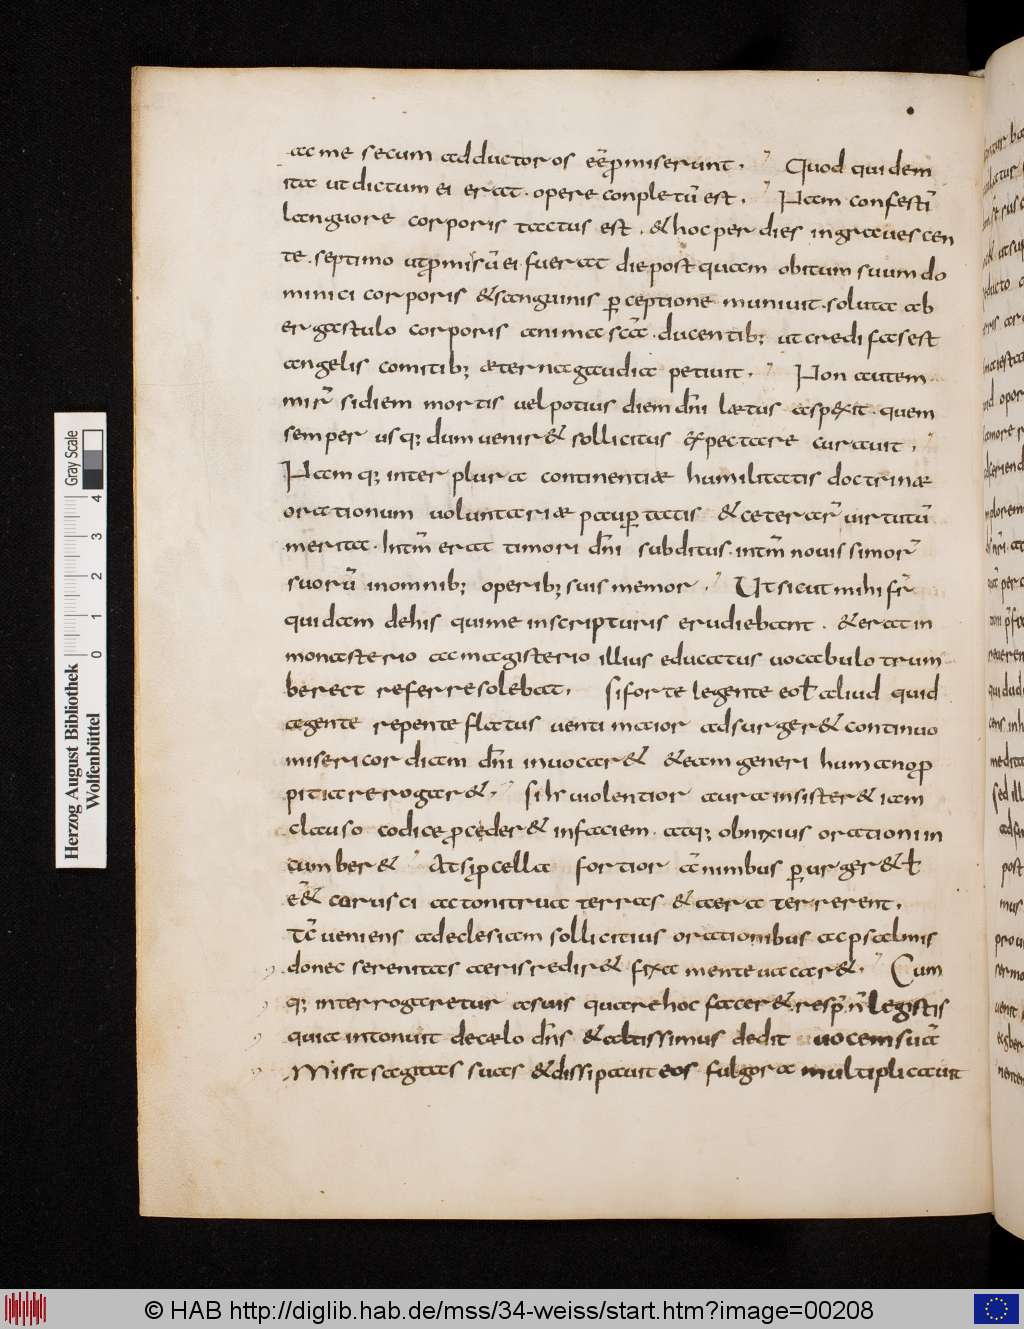 ac me secum adductoros eē ꝓmiserunt. Quod quidem
ita ut dictum ei erat. opere conpletū est. Nam confestī
languore corporis tactus est. & hoc per dies ingrauescen
te. septimo ut ꝓmisū ei fuerat die postquam obitum suum do
minici corporis & sanguinis ꝑceptione muniuit. soluta ab
ergastulo corporis anima scā. ducentib; ut credi fas est
angelis comitib; æterna gaudia petiuit. Non autem
mir̄ si diem mortis uel potius diem dn̄i lætus aspexit. quem
semper usq; dum uenir& sollicitus expectare curauit.
Namq; inter plura continentiæ humilitatis doctrinæ
orationum uoluntariæ pauꝑtatis & ceterar̄ uirtutū
merita. Intm̄ erat timori dn̄i subditus. intm̄ nouissimor̄
suorū inomnib; operib; suis memor. Ut sicut mihi fr̄
quidam dehis quime inscripturis erudiebant. & erat in
monasterio ac magisterio illius educatus uocabulo trum
berect referre solebat. si forte legente eo ł aliud quid
agente repente flatus uenti maior adsurger& continuo
misericordiam dn̄i inuocar& & eam generi humano ꝓ
pitiari rogar&. si uiolentior aura insister& iam
clauso codice ꝓceder& infaciem. atq; obnixius orationi in
cumber& At si ꝓcella fortior ā nimbus ꝑurger& ł
ē& corusci ac tonitrua terras & aera terrerent.
Tc̄ ueniens adeclesiam sollicitius orationibus ac psalmis
donec serenitas aeris redir& fixa mente uacar&. Cum
q; interrogaretur asuis quare hoc facer& resp̄ n̄ legistis
quia intonuit decælo dn̄s & altissimus dedit uocem suā
Misit sagitas suas & dissipauit eos fulgora multiplicauit
Herzog August Bibliothek
Wolfenbüttel
0 1 2 3 4
Gray Scale
© HAB http://diglib.hab.de/mss/34-weiss/start.htm?image=00208